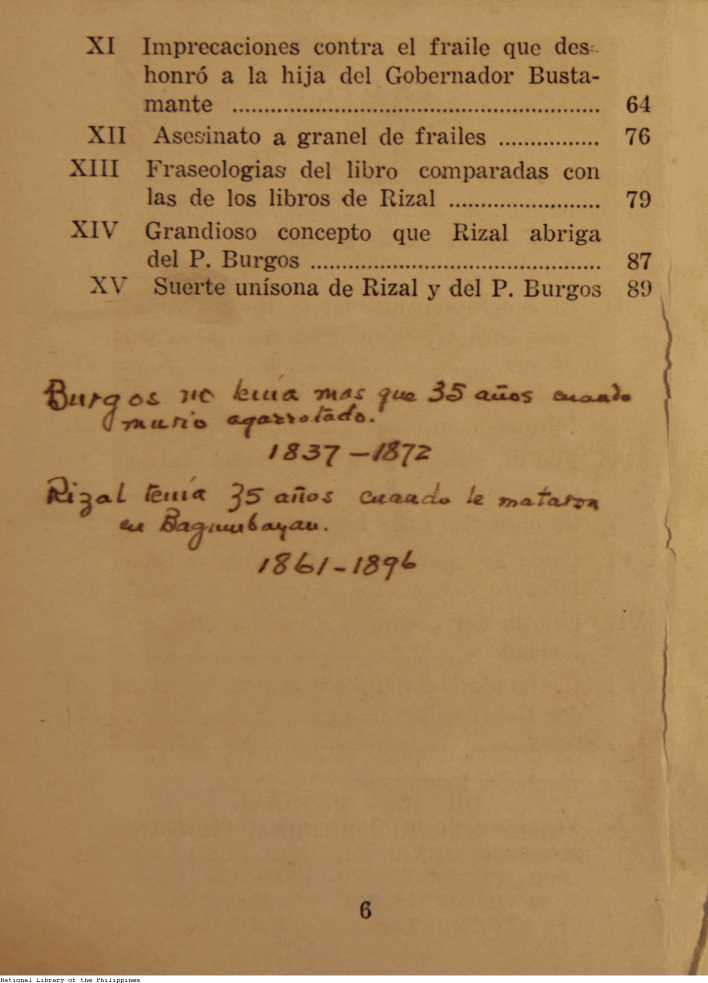 XI Imprecaciones contra el fraile que des-
honró a la hija del Gobernador Busta-
mante ........................................................... 64
XII Asesinato a granel de frailes ................ 76
XIII Fraseologias del libro comparadas con
las de los libros de Rizal ........................ 79
XIV Grandioso concepto que Rizal abriga
del P. Burgos .............................................. 87
XV Suerte unísona de Rizal y del P. Burgos 89
Burgos no tenía mas que 35 años cuando
murio agarrotado.
1837-1872
Rizal tenía 35 años cuando le mataron
en Bagumbayan.
1861-1896
6
National Library of the Philippines